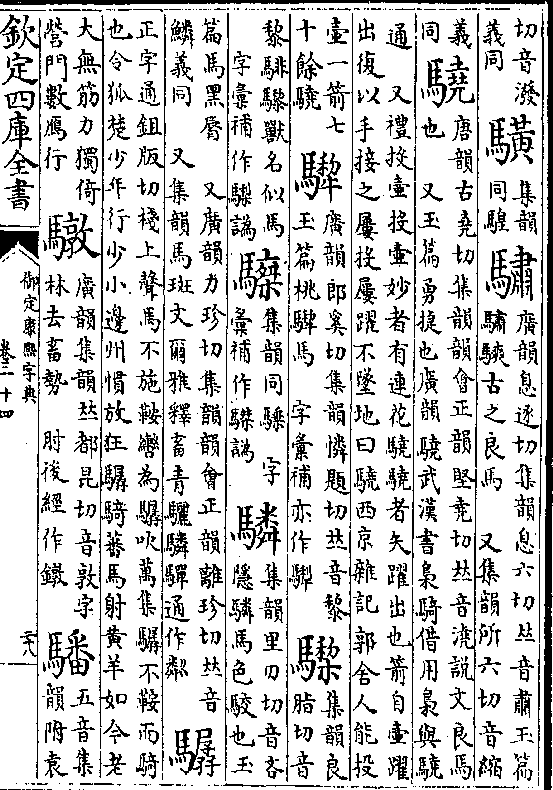 切音潑義同 䮲 集韻同騜 驌 廣韻息逐切集韻息六切𠀤音肅玉篇驌騻古之良馬 又集韻所六切音縮
義同 驍 唐韻古堯切集韻韻會正韻堅堯切𠀤音澆說文良馬也 又玉篇勇捷也廣韻驍武漢書梟騎借用梟與驍
通 又禮投壺投壺妙者有連花驍驍者矢躍出也箭自壺躍
出復以手接之屢投屢躍不墜地曰驍西京雜記郭舍人能投
壺一箭七十餘驍 廣韻郎奚切集韻憐題切𠀤音黎玉篇桃馬 字彙補亦作 集韻良脂切音
黎騑獸名似馬 字彙補作譌 集韻同 字彙補作譌 驎 集韻里刃切音吝隱驎馬色駁也玉
篇馬黑脣 又廣韻力珍切集韻韻會正韻離珍切𠀤音
鱗義同 又集韻馬斑文爾雅釋畜青驪驎驒通作粼 驏
正字通鉏版切棧上聲馬不施鞍轡為驏吹萬集驏不鞍而騎
也令狐楚少年行少小邊州慣放狂驏騎蕃馬射黃羊如今老
大無筋力獨倚營門數鴈行 驐 廣韻集韻𠀤都昆切音敦字林去畜勢 肘後經作鐓 𩦫 五音集韻附袁
欽定四庫全書
御定康熙字典
卷三十四